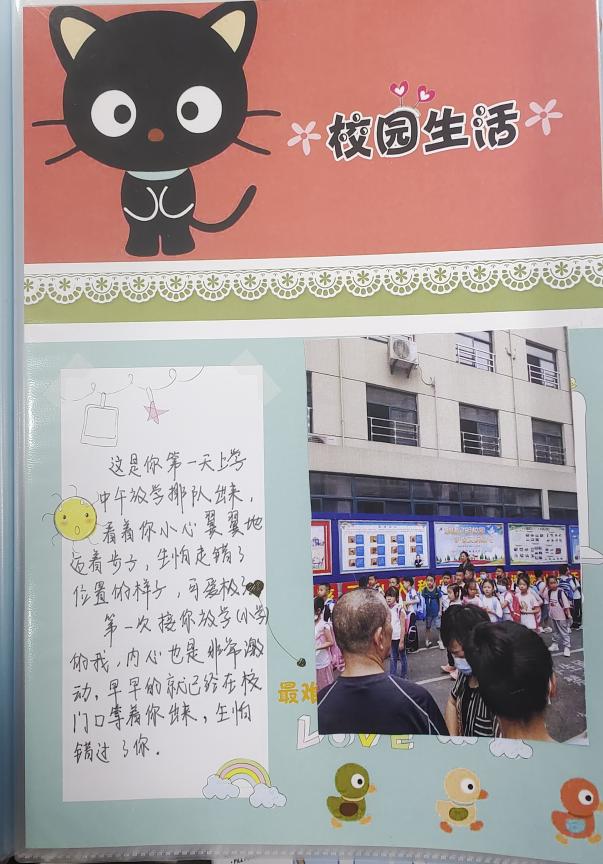 校园生活
这是你第一天上学
中午放学排队出来，
看着你小心翼翼地
迈着步子，生怕走错了
位置的样子，可爱极了
第一次接你放学(小学)
的我，内心也是非常激
动，早早的就已经在校
门口等着你出来，生怕
错过了你.
最难
LOVE